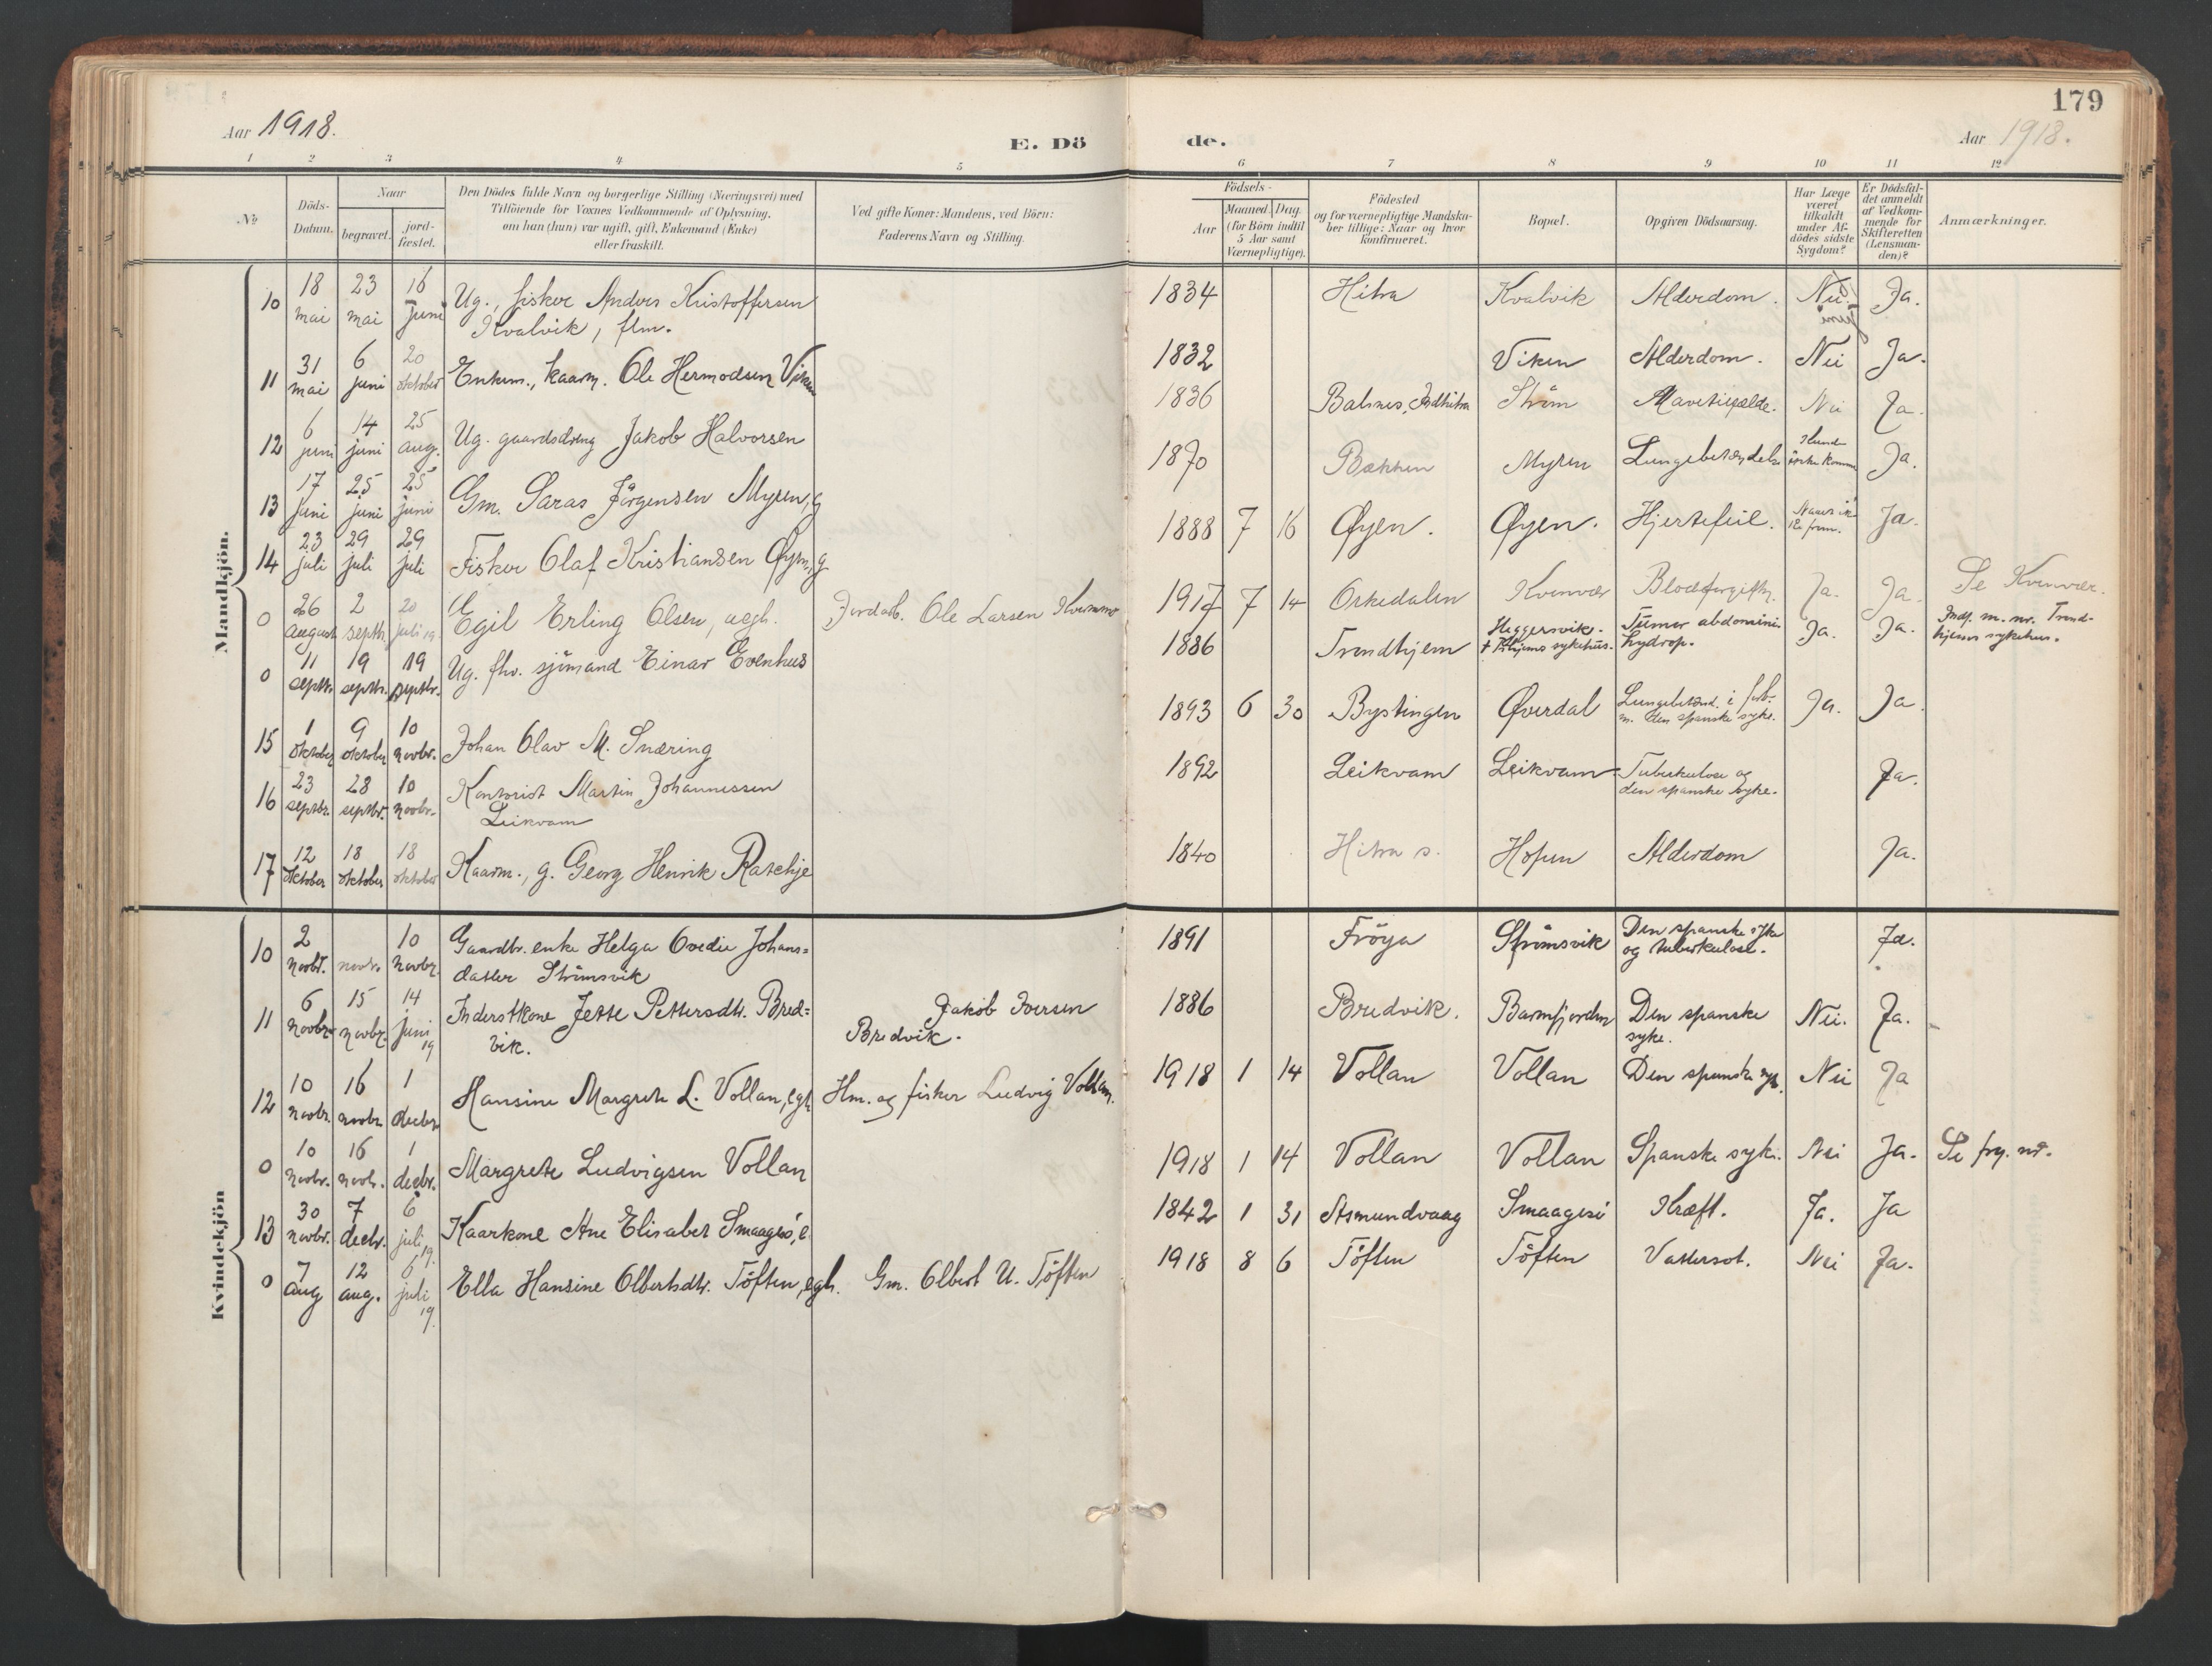 179
Aar 1918.
E. Dö
de.
Aar 1918.
1 2 3 4 5 6 7 8 9 10 11 12
No
Döds-
Datum.
Naar
begravet.
jord-
fæstet.
Den Dödes fulde Navn og borgerlige Stilling (Næringsvei) med
Tilföiende for Voxnes Vedkommende af Oplysning,
om han (hun) var ugift, gift, Enkemand (Enke)
eller fraskilt.
Ved gifte Koner: Mandens, ved Börn:
Faderens Navn og Stilling.
Födsels-
Aar
Maaned. Dag.
(for Börn indtil
5 Aar samt
Værnepligtige).
Födested
og for værnepligtige Mandska-
ber tillige: Naar og hvor
konfirmeret.
Bopæl.
Opgiven Dödsaarsag.
Har Læge
været
tilkaldt
under Af-
dödes sidste
Sygdom?
Er Dödsfal-
det anmeldt
af Vedkom-
mende for
Skifteretten
(Lensman-
den)?
Anmærkninger.
Mandkjön.
10 18 mai 23 mai 16 juni Ug., fisker Anders Kristoffersen
Kvalvik, flm. 1834 Hitra Kvalvik Alderdom. Nei. Ja.
juni
11 31 mai 6 juni 20 oktober Enkem., kaarm. Ole Hermodsen Viken 1832 Viken Alderdom. Nei Ja.
12 6 juni 14 juni 25 aug. Ug. gaardsdreng Jakob Halvorsen 1836 Balsnes, Indhitra Ström Nei Ja.
13 17 juni 25 juni 25 juni Gm. Saras Jörgensen Myren, g 1870 Bakken Myren Lungebetændelse Kunde ikke komme Ja.
14 23 juli 29 juli 29 juli Fisker Olaf Kristiansen Øyen, g 1888 7 16 Øyen. Øyen. Hjertefeil. Ja.
0 26 august 2 septb. 20 juli 19 Egil Erling Olsen, uegh. Jordarb. Ole Larsen 1917 7 14 Orkedalen Kvenvær Blodforgiftn. Ja. Ja. Se Kvenvær.
0 11 septbr. 19 septbr. 19 septbr. Ug. fhv. sjömand Einar Evenhus 1886 Trondhjem Heggersvik.
† Trhjems sykehus. Tumor abdominis
hydrop. Ja. Ja. Indf. m. nr. Trond-
hjems sykehus.
15 1 oktober 9 oktober 10 novbr. Johan Olav M. Snæring 1893 6 30 Bystingen Øverdal Lungebetænd. i forb.
m. den spanske syke. Ja. Ja
16 23 septbr. 28 septbr. 10 novbr. Kontorist Martin Johannessen
Leikvam 1892 Leikvam Leikvam Tuberkulose og
den spanske syke. Ja.
17 12 oktober 18 oktober 18 oktober Kaarm., g. Georg Henrik Ratchje 1840 Hitra s. Hopen Alderdom Ja.
Kvindekjön
10 2 novbr. novbr. 10 novbr. Gaardbr. enke Helga Ovedie Johans=
datter Strömsvik 1891 Fröya Strömsvik Den spanske syke
og tuberkulose. Ja.
11 6 novbr. 15 novbr. 14 juni 19 Inderstkone Jette Pettersdtr. Bred=
vik. Jakob Iversen
Bredvik. 1886 Bredvik. Barmfjorden Den spanske
syke. Nei. Ja.
12 10 novbr. 16 novbr. 1 decbr. Hansine Margrete L. Vollan, egh Hm. og fisker Ludvig Vollan. 1918 1 14 Vollan Vollan Den spanske syk. Nei Ja
0 10 novbr. 16 novb. 1 decbr. Margrete Ludvigsen Vollan 1918 1 14 Vollan Vollan Spanske syke. Nei Ja. Se frg. nr.
13 30 novbr. 7 decbr. 6 juli 19. Kaarkone Ane Elisabet Smaagesö, e 1842 1 31 Asmundvaag Smaagesö Kræft. Ja. Ja
0 7 aug 12 aug. 6 juli 19. Ella Hansine Olbertsdtr. Töften, egh. Gm. Olbert U. Töften 1918 8 6 Töften Töften Vattersot. Nei Ja.